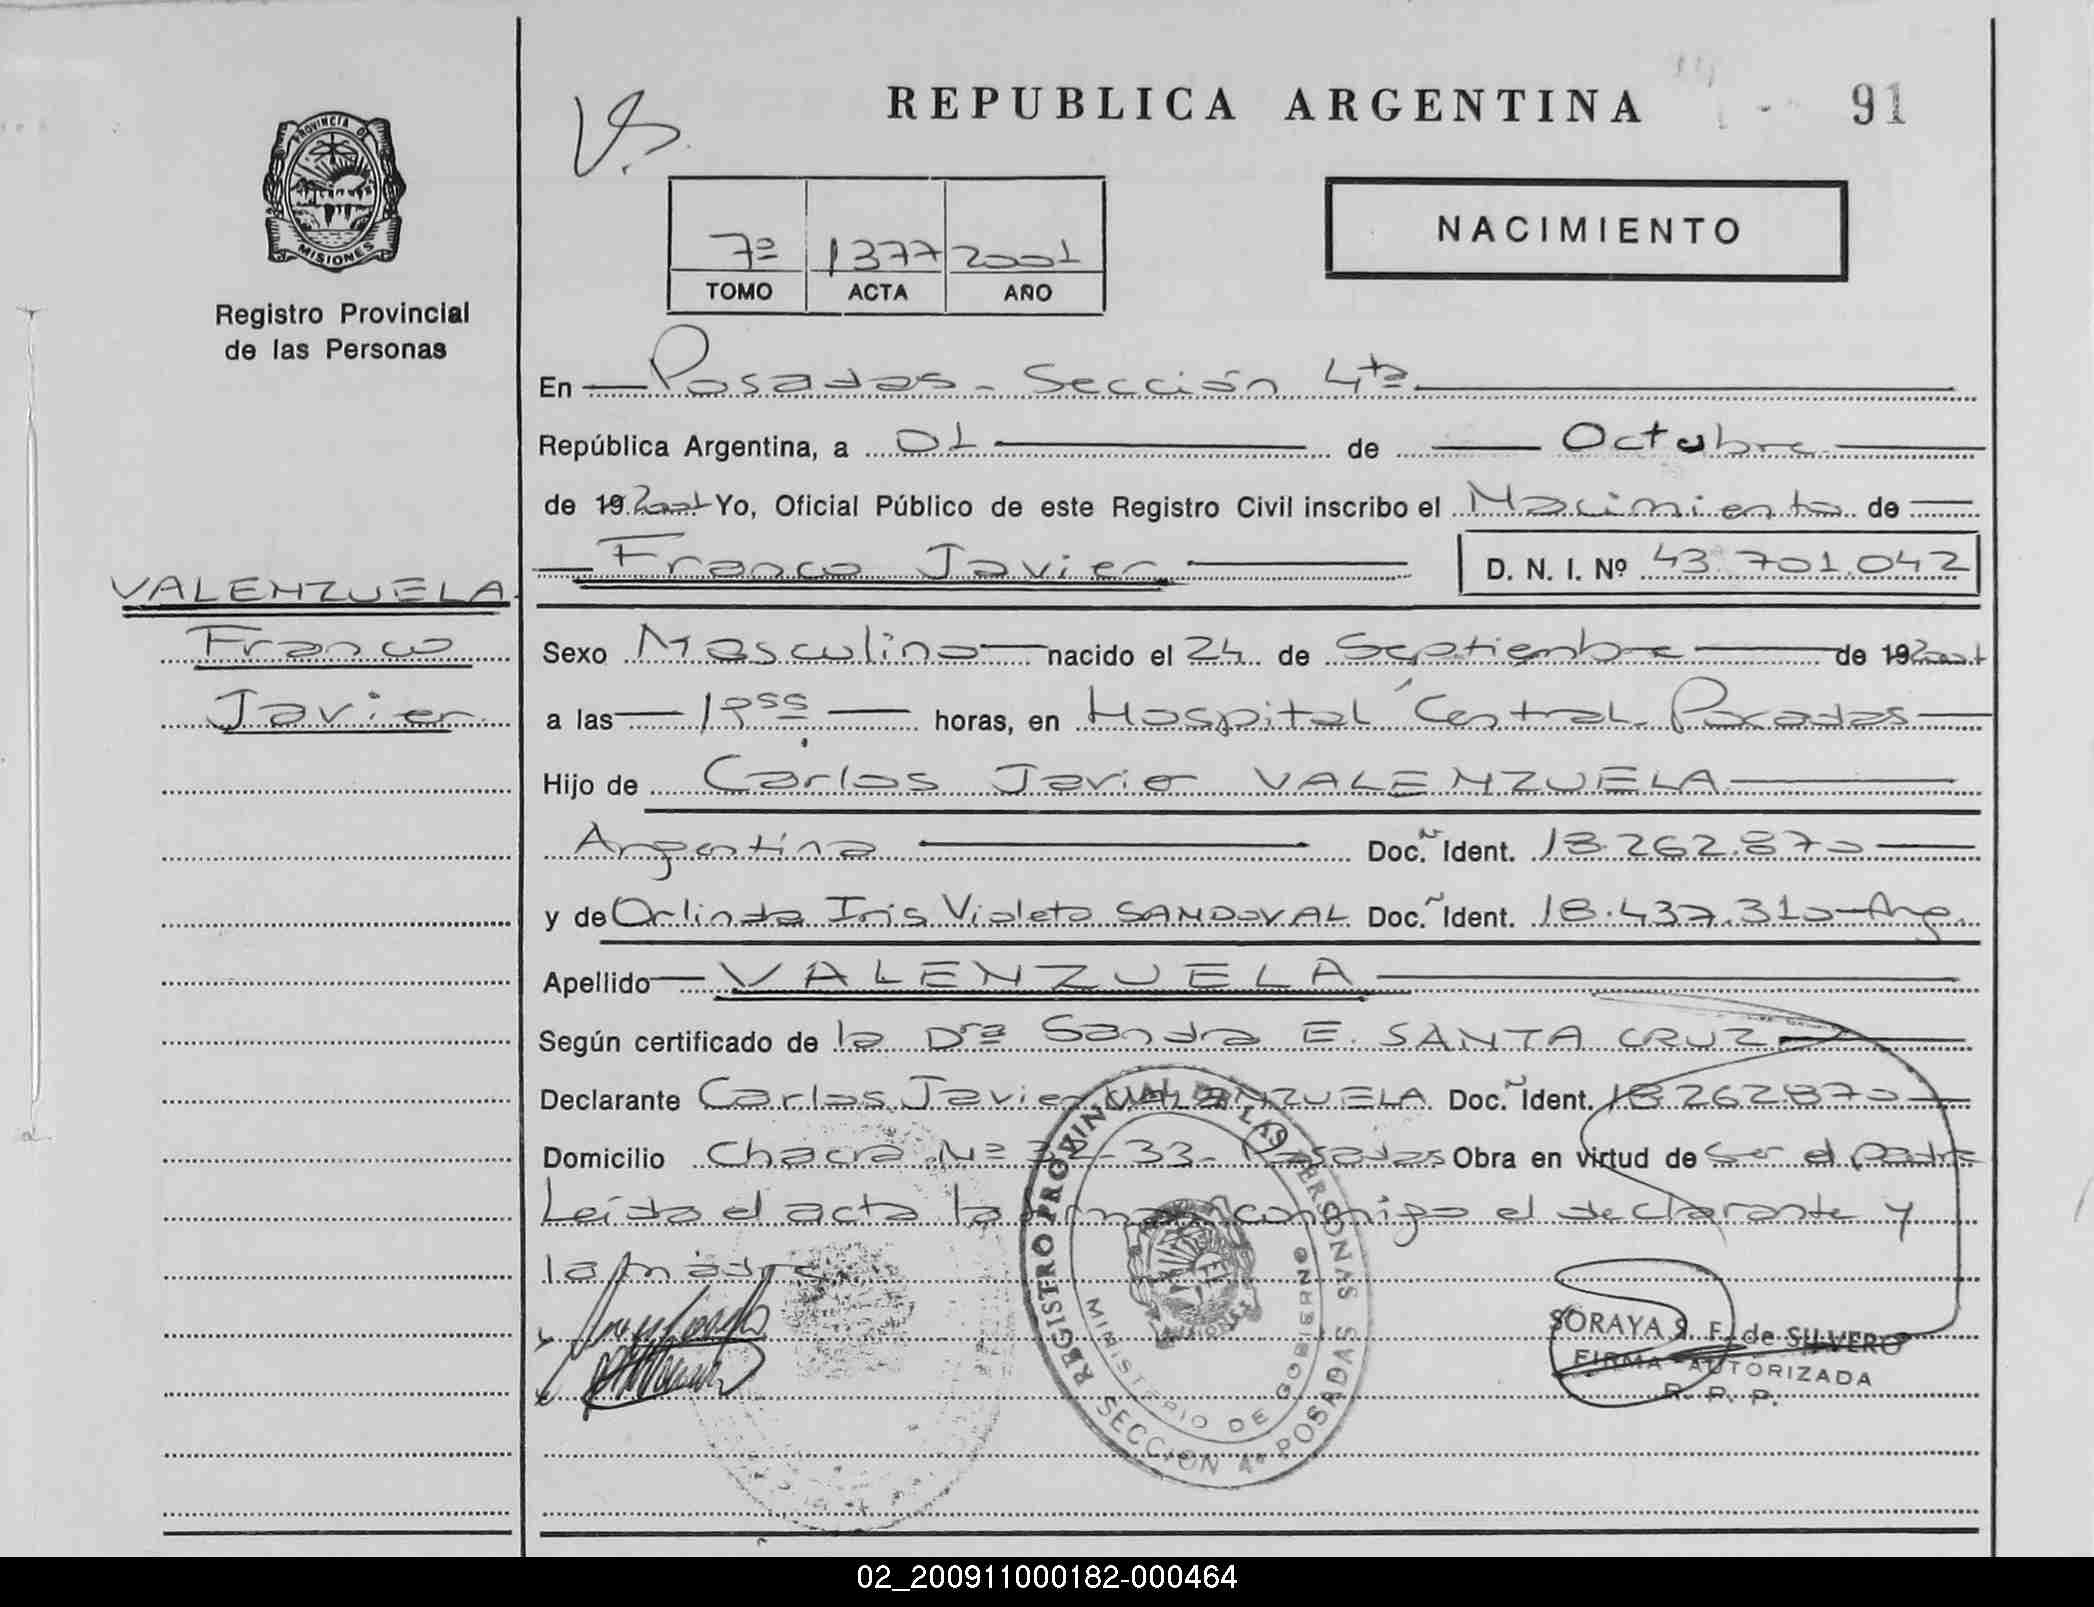 REPUBLICA ARGENTINA
91
PROVINCIA DE
MISIONES
Registro Provincial
de las Personas
7º 1377 2001
TOMO ACTA AÑO
NACIMIENTO
En Posadas - Sección 4ta
República Argentina, a 01 de Octubre
de 19 2001 Yo, Oficial Público de este Registro Civil inscribo el Nacimiento de
Franco Javier D. N. I. Nº 43.701.042
VALENZUELA
Franco
Javier
Sexo Masculino nacido el 24 de Septiembre de 19 2001
a las horas, en Hospital Central Posadas
Hijo de Carlos Javier VALENZUELA
Argentina Doc. Ident. 18.262.870
y de Orlinda Iris Violeta SANDOVAL Doc. Ident. 18.437.310-Arg.
Apellido VALENZUELA
Según certificado de la Dra Sandra E. SANTA CRUZ
Declarante Carlos Javier VALENZUELA Doc. Ident. 18.262.870
Domicilio Chacra Nº 32-33- Posadas Obra en virtud de Ser el padre
Leída el acta la firman conmigo el declarante y
la madre.
REGISTRO PROVINCIAL DE LAS PERSONAS
MINISTERIO DE GOBIERNO
SECCION 4ª POSADAS
MISIONES
SORAYA S. F. de SILVERO
FIRMA AUTORIZADA
R. P. P.
02_200911000182-000464